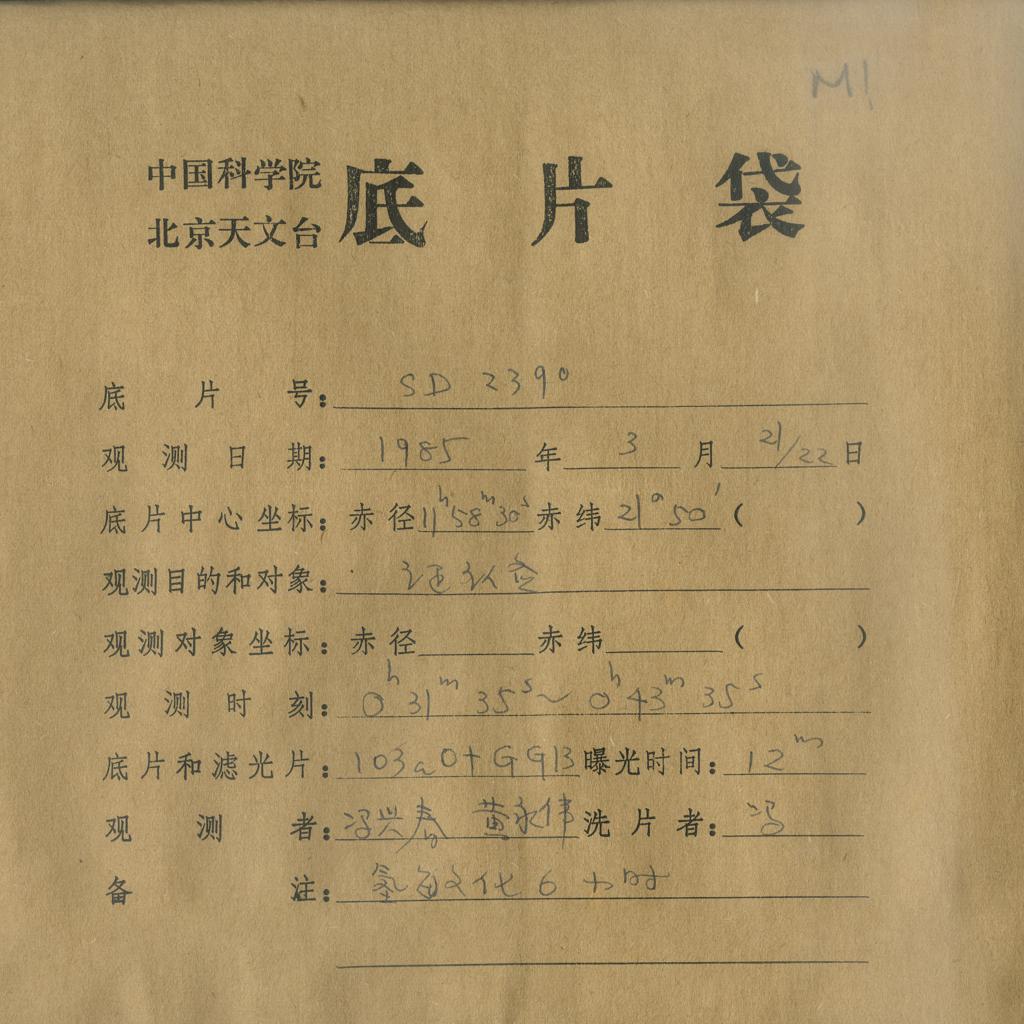 M1
中国科学院
北京天文台
底片袋
底片号：SD 2390
观测日期：1985年3月21/22日
底片中心坐标：赤径11h58m30s赤纬21°50′（ ）
观测目的和对象：证认
观测对象坐标：赤径 赤纬 （ ）
观测时刻：0h31m35s～0h43m35s
底片和滤光片：103aO+GG13曝光时间：12m
观测者：冯兴春 黄永伟洗片者：冯
备注：氢敏化6小时